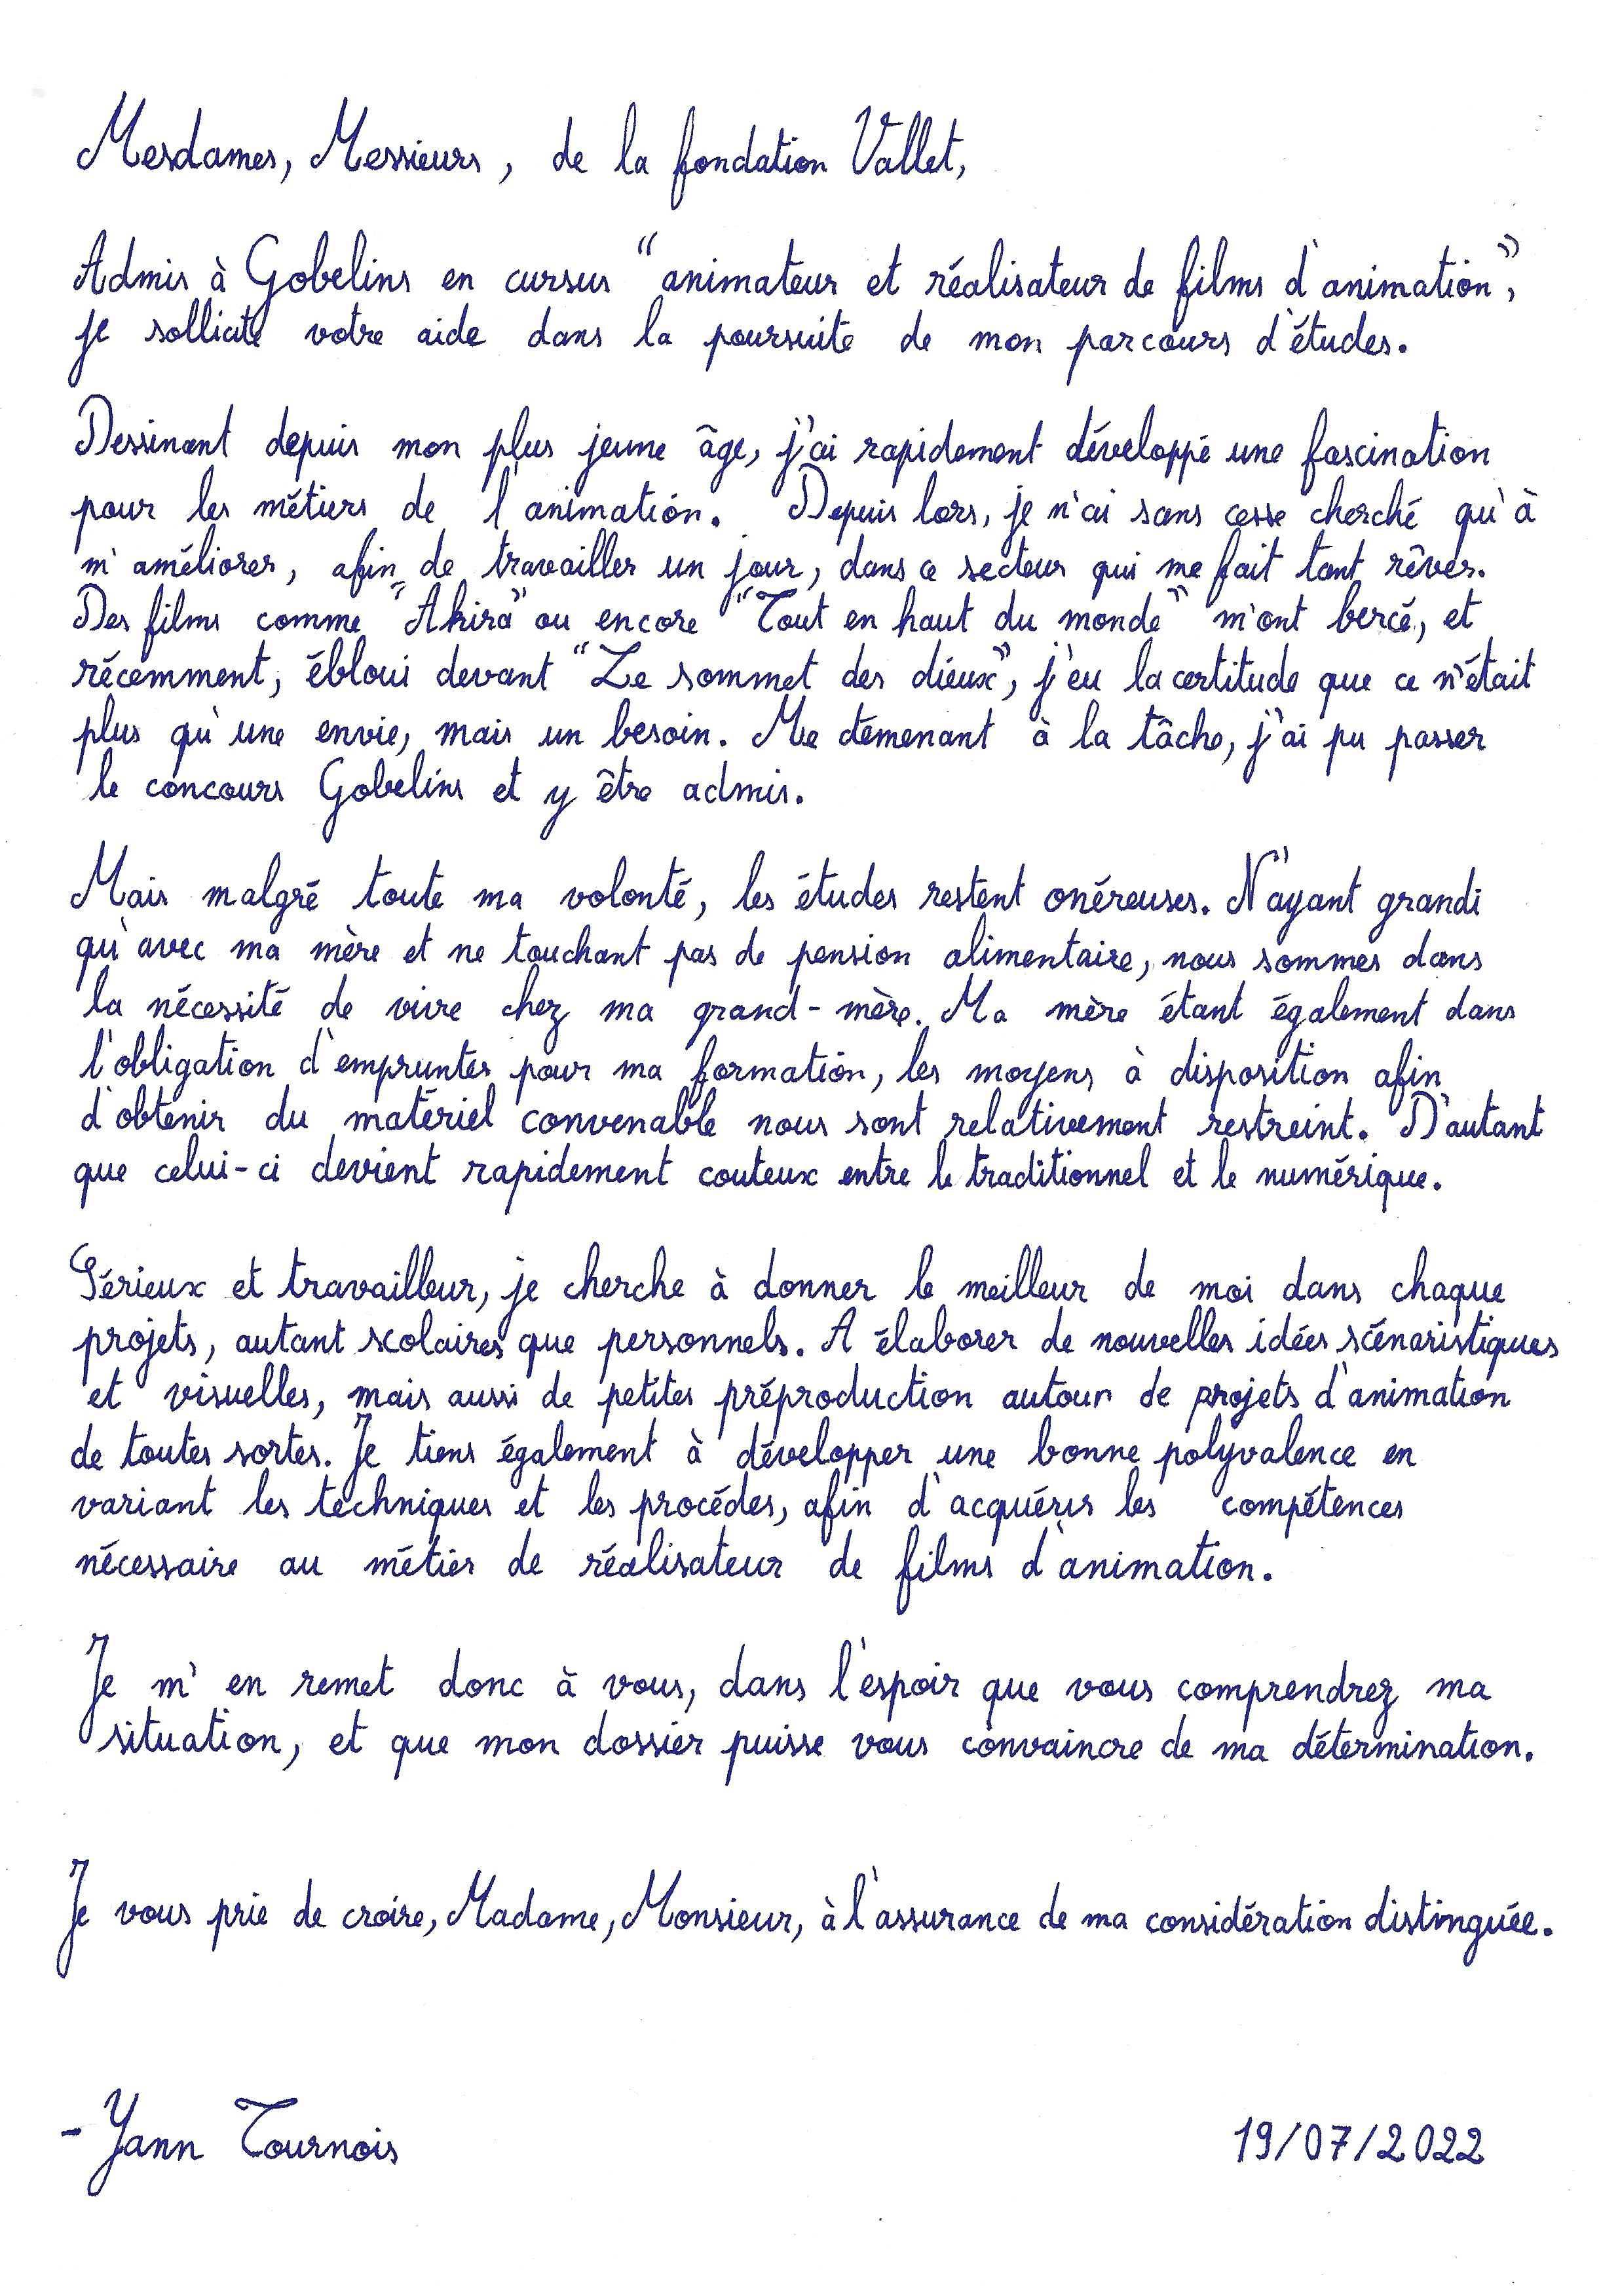 Mesdames, Messieurs, de la fondation Vallet,
Admis à Gobelins en cursus "animateur et réalisateur de films d'animation",
je sollicite votre aide dans la poursuite de mon parcours d'études.
Dessinant depuis mon plus jeune âge, j'ai rapidement développé une fascination
pour les métiers de l'animation. Depuis lors, je n'ai sans cesse cherché qu'à
m'améliorer, afin de travailler un jour, dans ce secteur qui me fait tant rêver.
Des films comme "Akira" ou encore "Tout en haut du monde" m'ont bercé, et
récemment, ébloui devant "Le sommet des dieux", j'eu la certitude que ce n'était
plus qu'une envie, mais un besoin. Me démenant à la tâche, j'ai pu passer
le concours Gobelins et y être admis.
Mais malgré toute ma volonté, les études restent onéreuses. N'ayant grandi
qu'avec ma mère et ne touchant pas de pension alimentaire, nous sommes dans
la nécessité de vivre chez ma grand-mère. Ma mère étant également dans
l'obligation d'emprunter pour ma formation, les moyens à disposition afin
d'obtenir du matériel convenable nous sont relativement restreint. D'autant
que celui-ci devient rapidement couteux entre le traditionnel et le numérique.
Sérieux et travailleur, je cherche à donner le meilleur de moi dans chaque
projets, autant scolaires que personnels. A élaborer de nouvelles idées scénaristiques
et visuelles, mais aussi de petites préproduction autour de projets d'animation
de toutes sortes. Je tiens également à développer une bonne polyvalence en
variant les techniques et les procédés, afin d'acquérir les compétences
nécessaire au métier de réalisateur de films d'animation.
Je m'en remet donc à vous, dans l'espoir que vous comprendrez ma
situation, et que mon dossier puisse vous convaincre de ma détermination.
Je vous prie de croire, Madame, Monsieur, à l'assurance de ma considération distinguée.
- Yann Tournois 19/07/2022